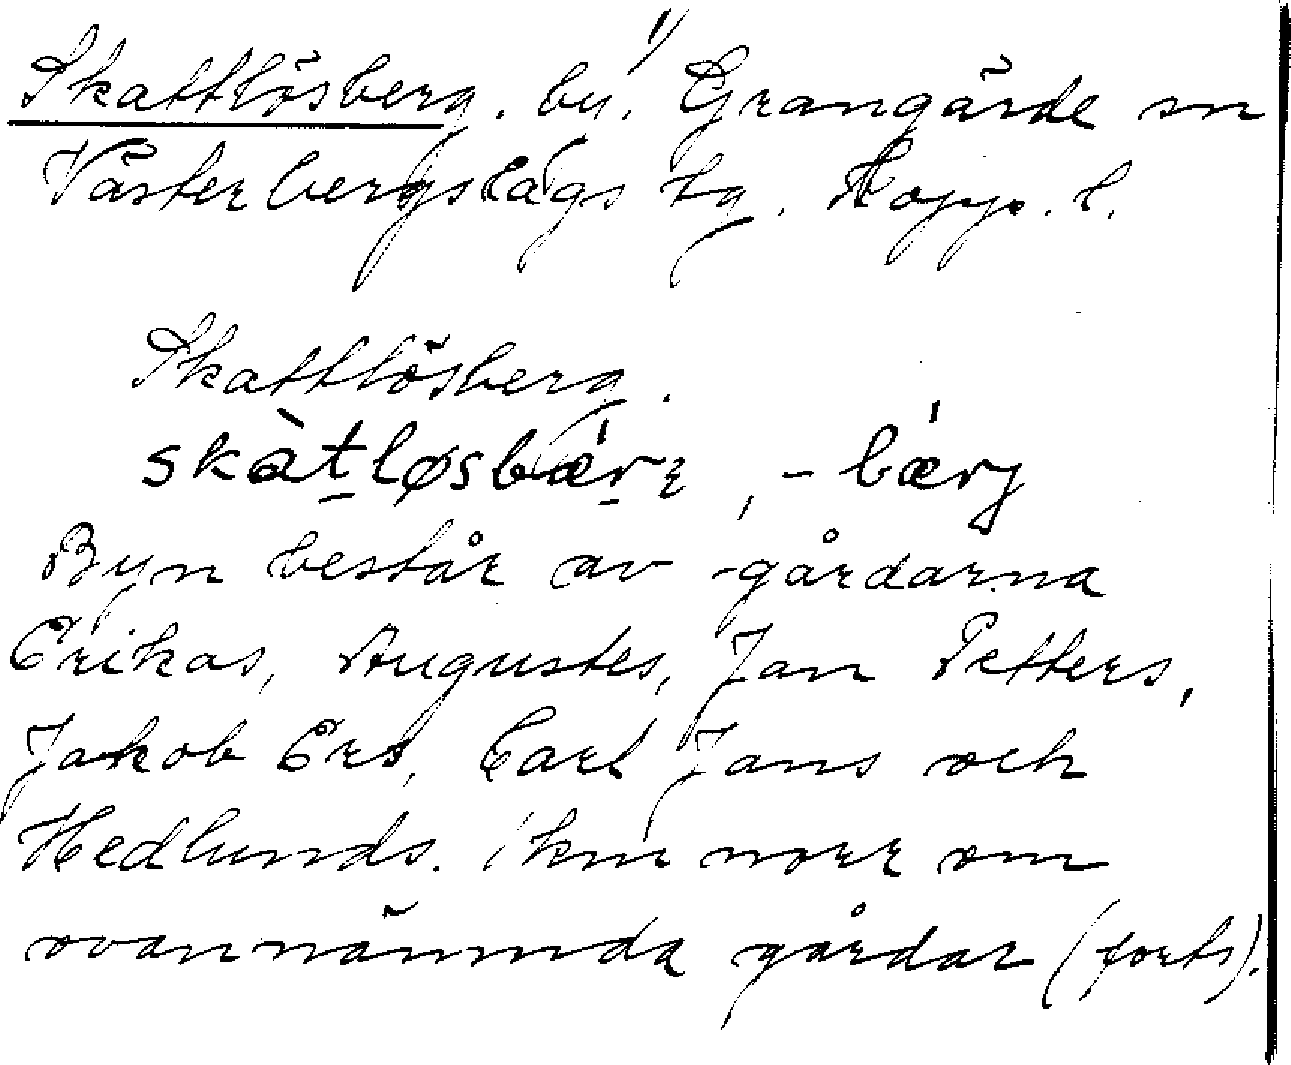 1)
Skattlösberg, by, Grangärde sn
Västerbergslags tg. Kopp. l.
Skattlösberg.
skàt̲løsbǽr̲ɪ, -bǽrj
Byn består av gårdarna
Erikas, Augustes, Jan Petters,
Jakob Ers, Carl Jans och
Hedlunds. 1 km norr om
ovannämnda gårdar (forts).